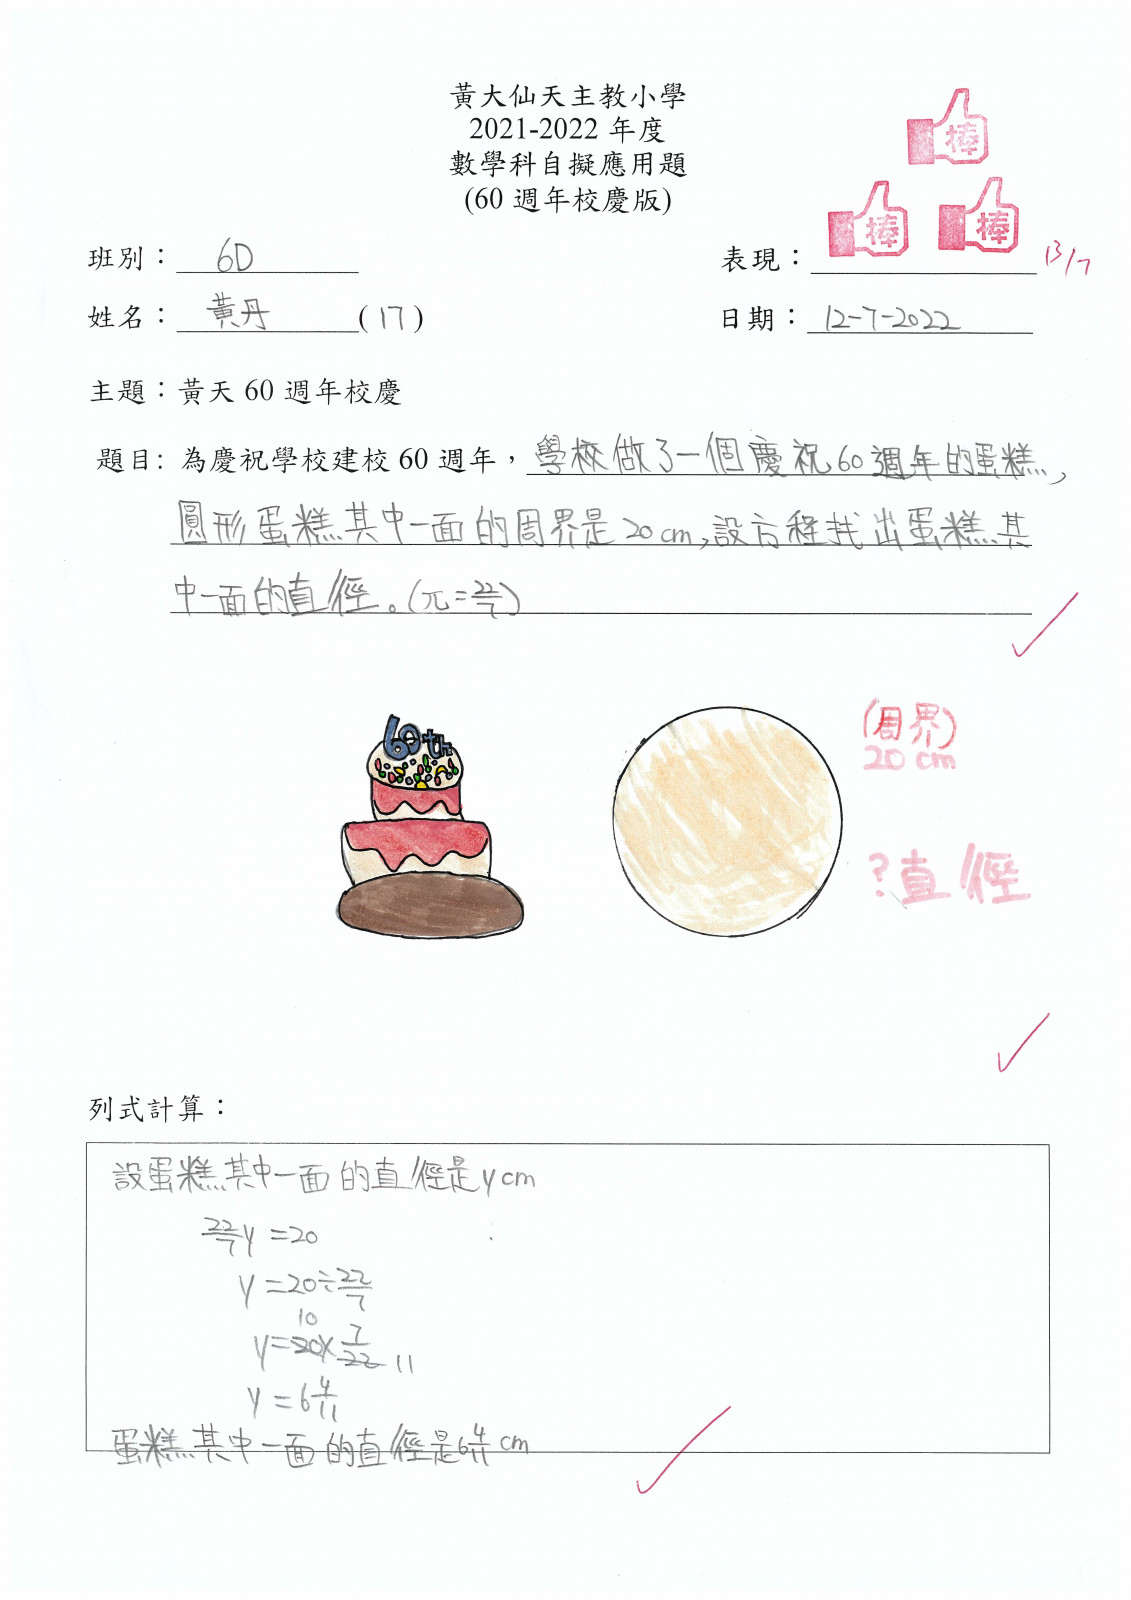 黃大仙天主教小學
2021-2022 年度
數學科自擬應用題
(60 週年校慶版)
棒
棒 棒
班別： 6D 表現： 13/7
姓名： 黃丹 (17) 日期： 12-7-2022
主題：黃天 60 週年校慶
題目: 為慶祝學校建校 60 週年，學校做了一個慶祝60週年的蛋糕，
圓形蛋糕其中一面的周界是20cm,設方程找出蛋糕其
中一面的直徑。(π=22/7)
60th
(周界)
20 cm
?直徑
列式計算：
設蛋糕其中一面的直徑是y cm
22/7 y =20
y =20÷22/7
10
y=20×7/22 11
y =6 4/11
蛋糕其中一面的直徑是6 4/11 cm